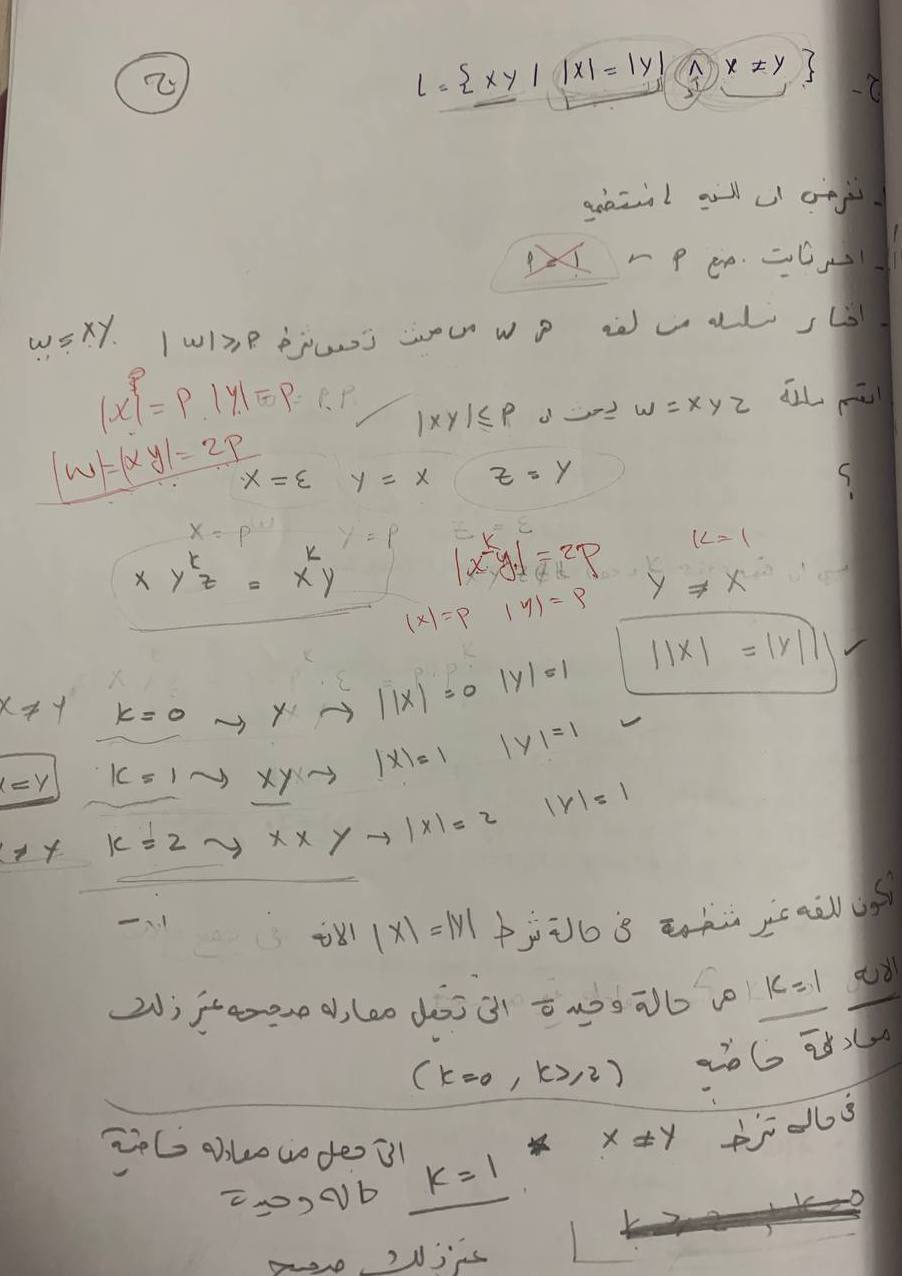 2- L = { xy | |x| = |y| ∧ x ≠ y }
2
- نفرض ان اللغه L منتظمه
- اختر ثابت ضخ P ~ P = 1
- اختار سلسله من لغه w من حيث تحقق شرط |w| ≥ P w = xy
|x| = P |y| = P
اقسم سلسلة w = xyz بحيث |xy| ≤ P ✓
|w| = |xy| = 2P
؟ x = ε y = x z = y
x y^k z = x^k y |x^k y| = 2P k = 1
|x| = P |y| = P y ≠ x
||x| = |y|| ✓
x ≠ y k = 0 → y → |x| = 0 |y| = 1
x = y k = 1 → xy → |x| = 1 |y| = 1 ✓
≠ y k = 2 → x x y → |x| = 2 |y| = 1
تكون للغه غير منتظمة في حالة شرط |x| = |y| الانه
الانه k = 1 هي حالة وحيدة التي تجعل معادله صحيحه غير ذلك
معادلة خاطئه (k = 0 , k ≥ 2)
في حاله شرط x ≠ y * التي تجعل من معادله خاطئة
k = 1 حالة وحيدة
k ≥ 2 , k = 0
غير ذلك صحيح